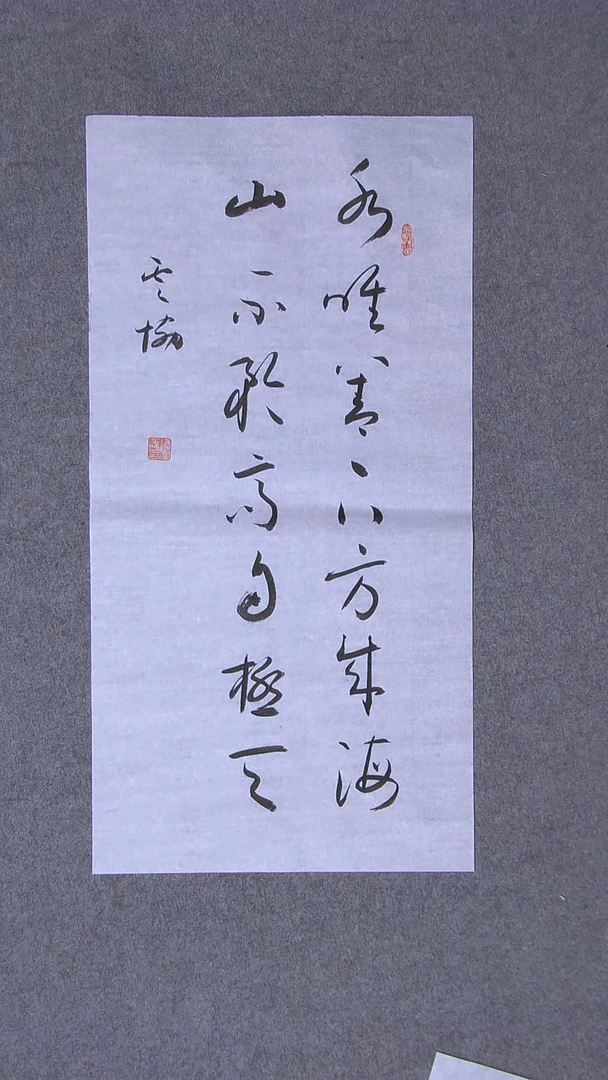 水唯善下方成海
山不矜高自極天